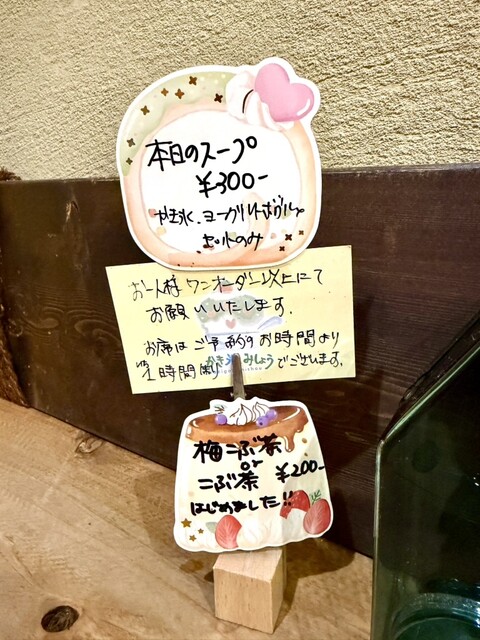 本日のスープ
¥300-
かき氷、ヨーグルトボウル
セットのみ
お一人様 ワンオーダー以上にて
お願いいたします。
お席は ご予約のお時間より
1時間制 でございます。
かき氷 みしょう
梅こぶ茶
or
こぶ茶 ¥200-
はじめました!!